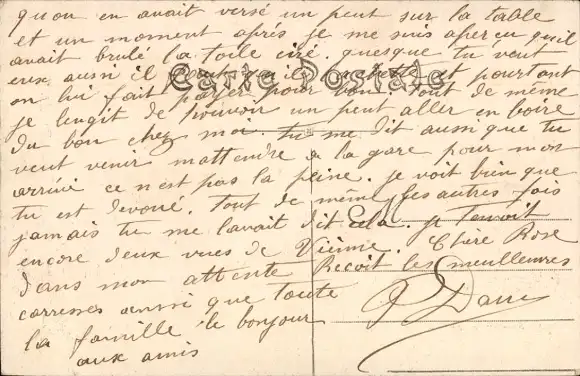 quon en avait versé un peut sur la table
et un moment aprés je me suis aperçu quil
avait brulé la toile ciré. quesque tu veut
eux aussi il et pourtant
Carte Postale
on lui fait payer pour bon tout de même
je lengit de pouvoir un peut aller en boire
du bon chez moi. tu me dit aussi que tu
veut venir mattendre a la gare pour mon
arrivé ce nest pas la peine. je voit bien que
tu est devoué. tout de même les autres fois
jamais tu me lavait dit cela. je tenvoit
encore deux vues de Vienne. Chère Rose
dans mon attente Recoit les meulleures
caresses ainsi que toute
la famille le bonjour
aux amis